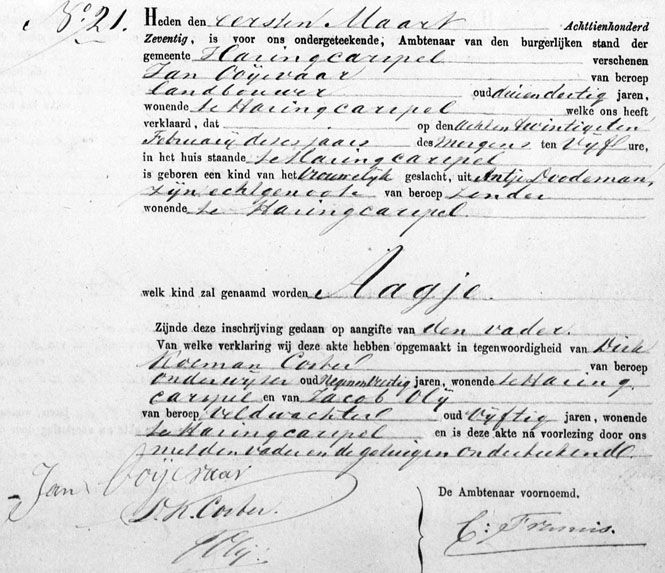 No. 21.
Heden den eersten Maart Achttienhonderd
Zeventig, is voor ons ondergeteekende, Ambtenaar van den burgerlijken stand der
gemeente Haringcarspel verschenen
Jan Ooijevaar van beroep
Landbouwer oud drieendertig jaren,
wonende te Haringcarspel welke ons heeft
verklaard, dat op den achten twintigsten
Februarij dezes jaars des Morgens ten Vijf ure,
in het huis staande te Haringcarspel
is geboren een kind van het Vrouwelijk geslacht, uit Antje Doodeman,
zijn echtgenoote van beroep zonder
wonende te Haringcarspel.
welk kind zal genaamd worden Aagje.
Zijnde deze inschrijving gedaan op aangifte van den vader.
Van welke verklaring wij deze akte hebben opgemaakt in tegenwoordigheid van Dirk
Koeman Coster van beroep
onderwijzer oud jaren, wonende te Haring
carspel en van Jacob Olij
van beroep Veldwachter oud Vijftig jaren, wonende
te Haringcarspel en is deze akte na voorlezing door ons
met den vader en de getuigen onderteekend.
Jan Ooijevaar
D. K. Coster.
J Olij
De Ambtenaar voornoemd.